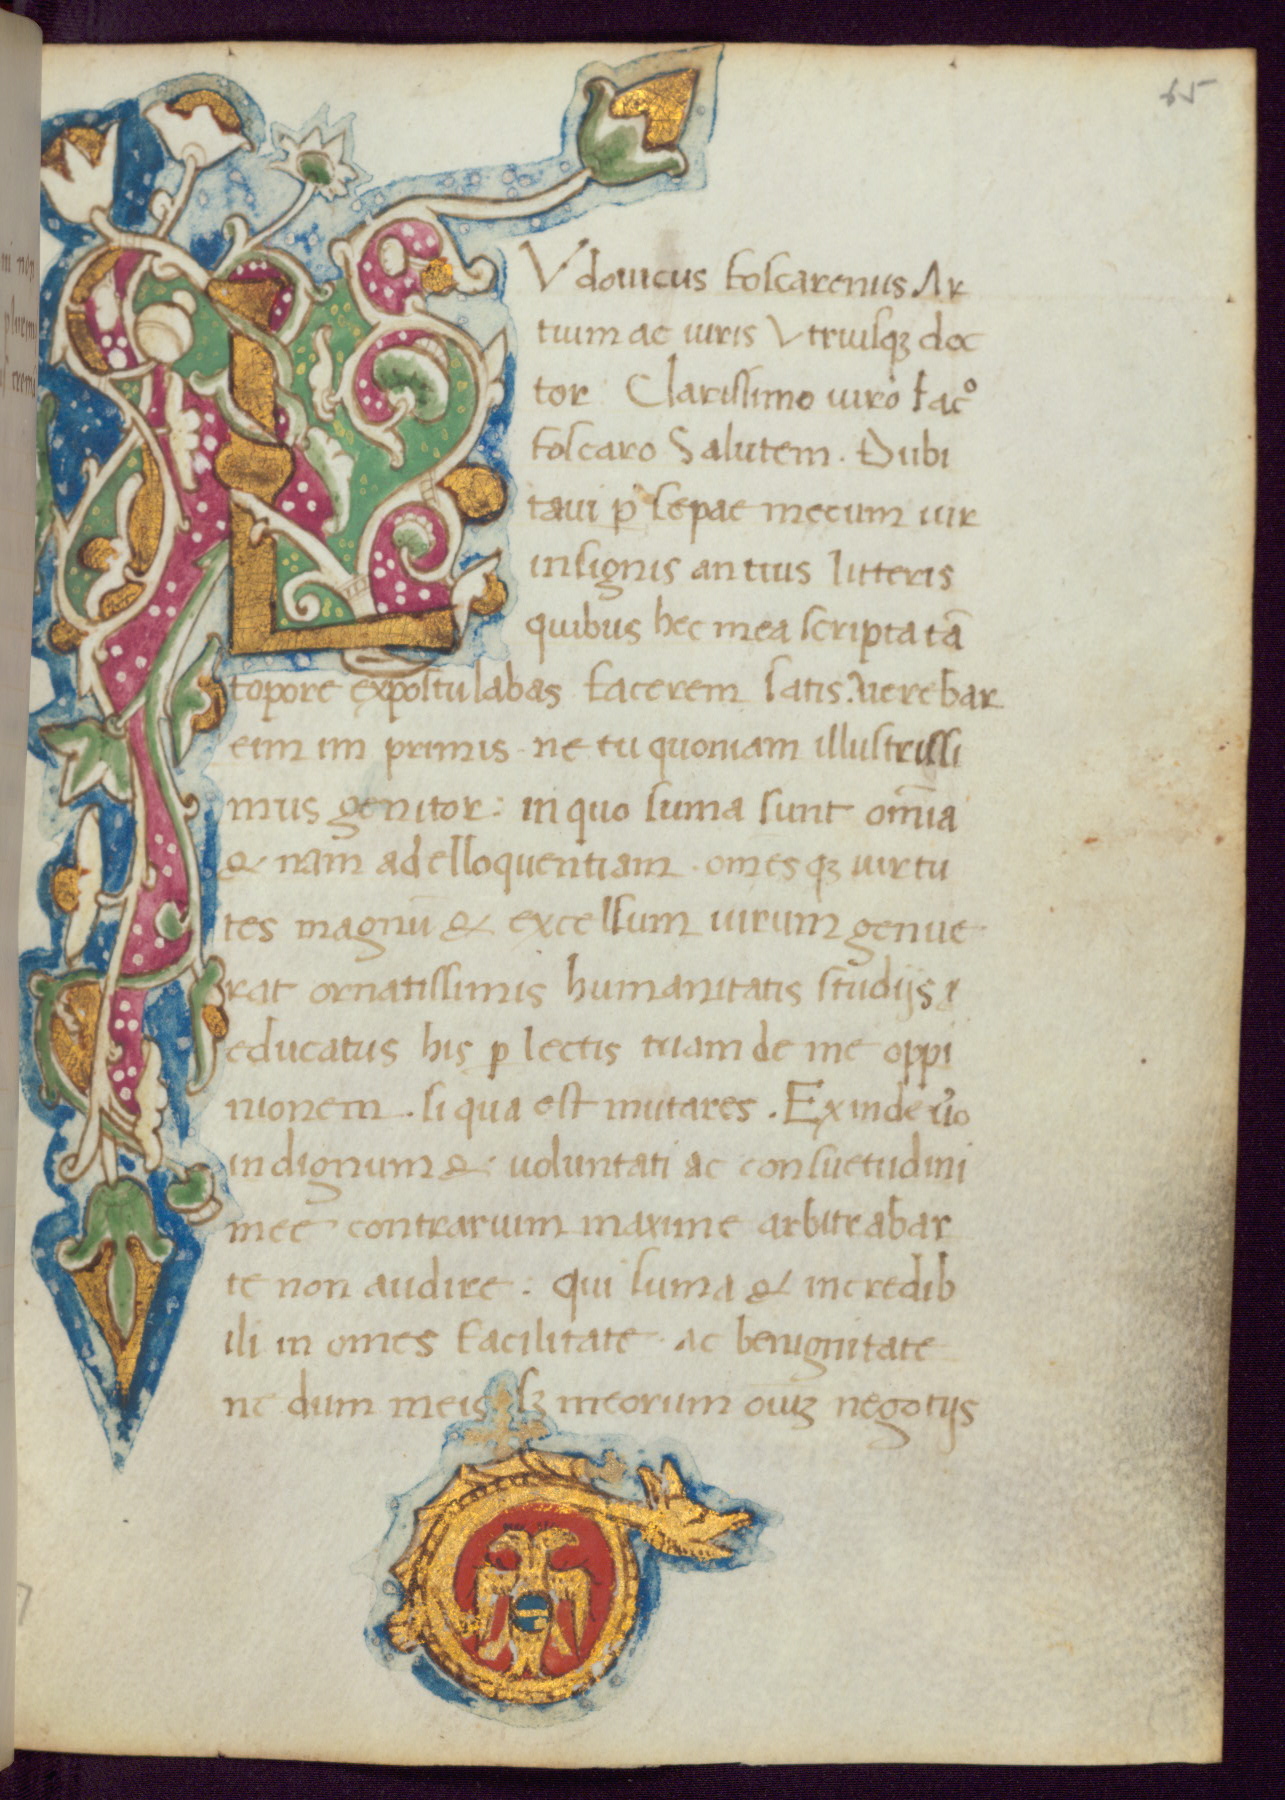 65
LVdouicus foscarenus Ar
tium ac iuris Vtriusqꝫ doc
tor Clarissimo uiro Iacº
foscaro Salutem. Dubi
taui ꝑ sepae mecum uir
insignis an tuis litteris
quibus hec mea scripta tā
topore expostulabas facerem satis. Verebar
eim im primis · ne tu quoniam illustrissi
mus genitor: in quo suma sunt om̄ia
& nam ad elloquentiam · omēs qꝫ uirtu
tes magnū & excelsum uirum genue
rat ornatissimis humanitatis studijs
educatus his ꝑ lectis tuam de me oppi
nionem . si qua est mutares . Exinde uͦo
indignum & uoluntati ac consuetudini
mee contrarium maxime arbitrabar
te non audire : qui suma & incredib
ili in omēs facilitate · ac benignitate
ne dum meis sꝫ meorum oīuꝫ negotijs